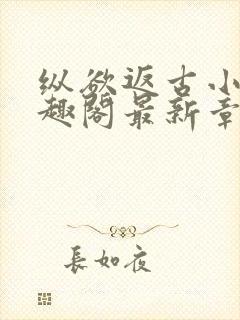 纵欲返古小
趣阁最新章
長如夜